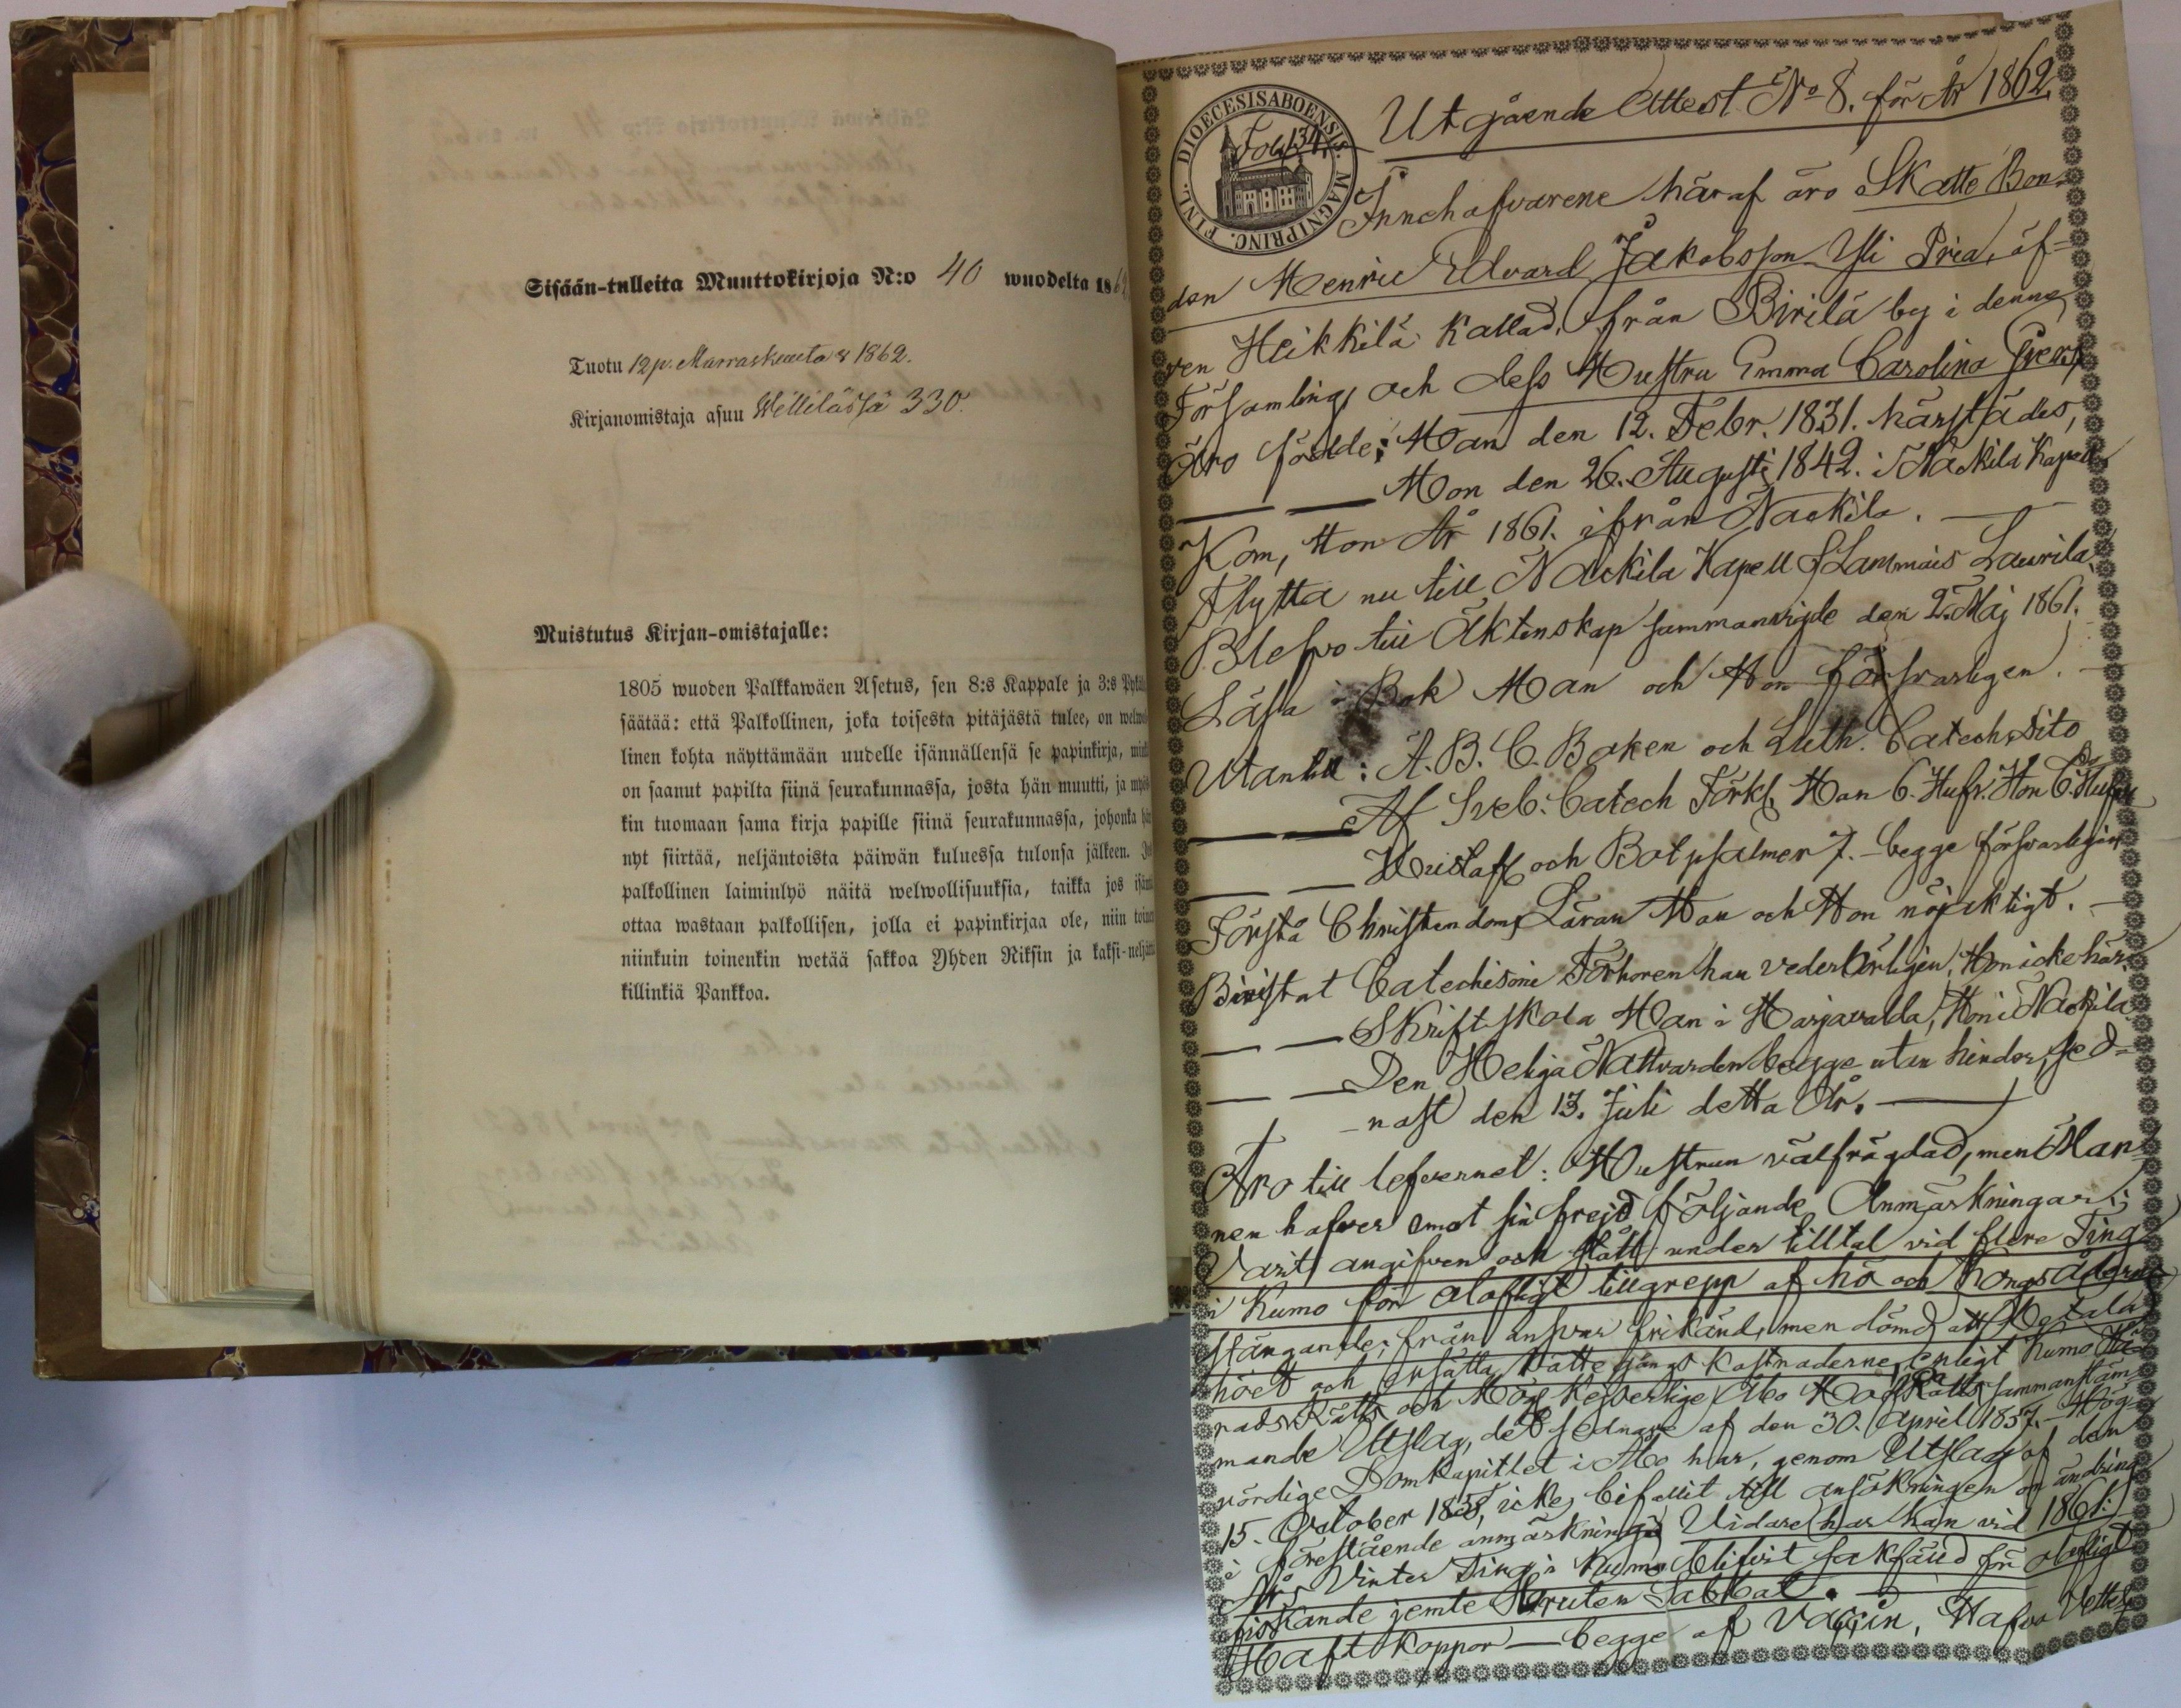 Sisään-tulleita Muuttokirjoja N:o 40 wuodelta 186
Tuotu 12 p. Marraskuuta 1862.
Kirjanomistaja asuu Willilässä 330.
Muistutus Kirjan-omistajalle:
1805 wuoden Palkkawäen Asetus, sen 8:s Kappale ja 3:s
säätää: että Palkollinen, joka toisesta pitäjästä tulee, on
linen kohta näyttämään uudelle isännällensä se papinkirja,
on saanut papilta siinä seurakunnassa, josta hän muutti, ja
kin tuomaan sama kirja papille siinä seurakunnassa, johonka
nyt siirtää, neljäntoista päiwän kuluessa tulonsa jälkeen.
palkollinen laiminlyö näitä welwollisuuksia, taikka jos
ottaa wastaan palkollisen, jolla ei papinkirjaa ole, niin
niinkuin toinenkin wetää sakkoa Yhden Riksin ja kaksi-
killinkiä Pankkoa.
DIOECESIS ABOENSIS. MAGNI PRINC. FINL.
Fol 134.
Utgående Attest No 8. för År 1862.
Innehafvarene häraf äro Skatte Bon-
den Henric Edvard Jakobsson Yli Pria, äf-
ven Heikkilä kallad, från Pirilä by i denna
Församling, och dess Hustru Emma Carolina
Äro födde; Han den 12. Febr. 1831. härstädes,
Hon den 26. Augusti 1842. i Nackila Kapell
Kom, Hon År 1861. ifrån Nackila.
Flytta nu till Nackila Kapell Lammais Laurila.
Blefvo till Äktenskap sammanvigde den 2. Maj 1861.
Läsa i Bok Han och Hon försvarligen.
Utantill: A.B.C. Boken och Luth. Catech. dito
Af Sveb. Catech Förkl. Han 6. Hufv. Hon 6. Hufv.
Hustafl. och Botpsalmer 7. begge försvarligen
Förstå Christendoms Läran Han och Hon nöjaktigt.
Bivistat Catechismi Förhören han vederbörligen, Hon icke här
Skriftskola Han i Harjavalda, Hon i Nackila
Den Heliga Nattvarden begge utan hinder, sed-
nast den 13. Juli detta År.
Äro till lefvernet: Hustrun välfrägdad, men Man-
nen hafver emot sin frejd följande Anmärkningar;
Varit angifven och stått under tilltal vid flere Ting
i Kumo för olofligt tillgrepp af hö och Kongsådrans
stängande; från ansvar frikänd, men dömd att betala
höet och ersätta Rättegångs kostnaderne, enligt Kumo Hä-
rads Rätts och Högl. Kejserlige Åbo Hof Rätts sammanstäm-
mande Utslag, det sednare af den 30. April 1857. Hög-
vördige Domkapitlet i Åbo har, genom Utslag af den
15. October 1858, icke bifallit till ansökningen om ändring
i förestående anmärkning. Vidare har han vid 1861.
Års Vinter Ting i Kumo blifvit sakfäld för olofligt
fiskande jemte bruten Sabbat.
Haft koppor — begge af Vaccin, Hafva